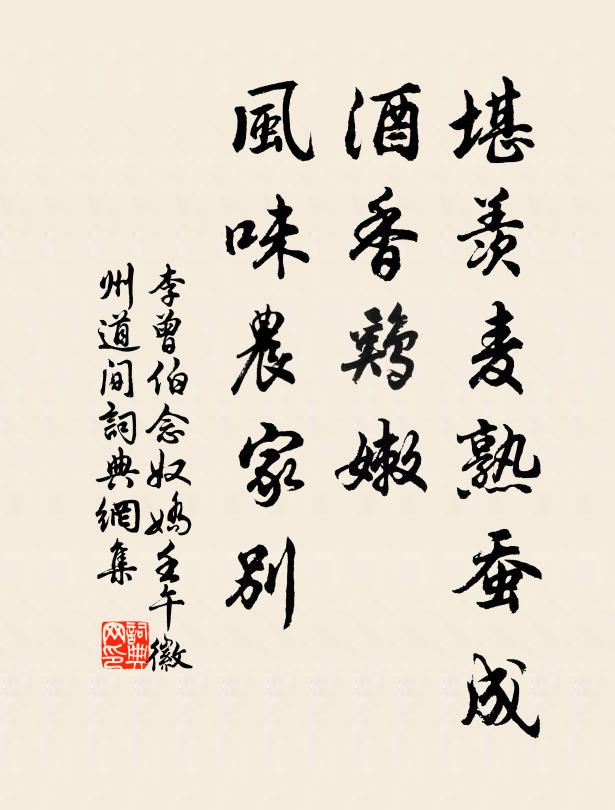 堪羨麦熟蚕成
酒香鶏嫩
風味農家別
李曾伯念奴嬌壬午徽
州道间詞典網集
詞典网印